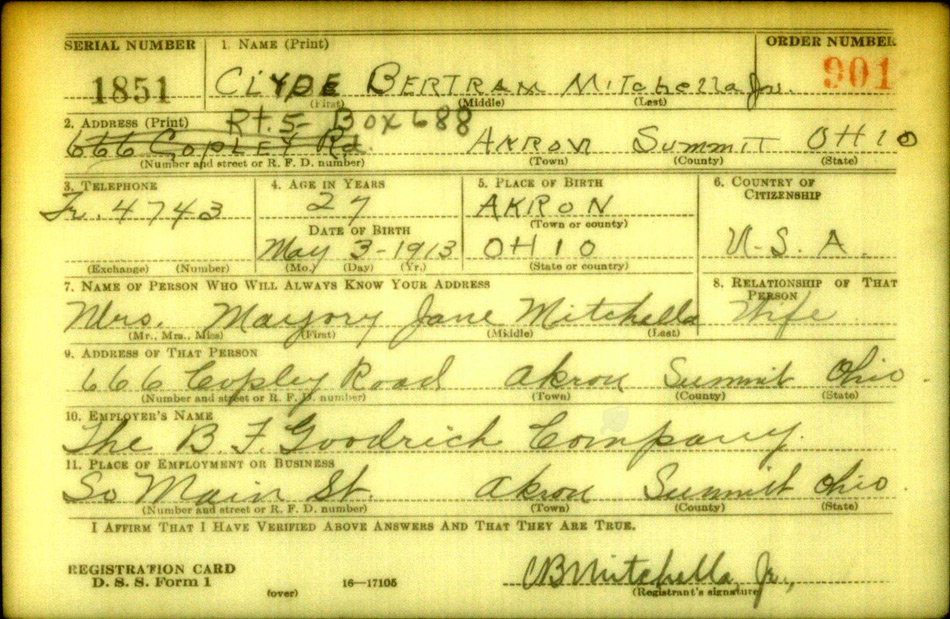 SERIAL NUMBER 1. NAME (Print) ORDER NUMBER
1851 CLYDE BERTRAM MITchella Jr. 901
(First) (Middle) (Last)
2. ADDRESS (Print) Rt. 5 Box 688
666 COPLEY Rd. AKRON SUMMIT OHIO
(Number and street or R. F. D. number) (Town) (County) (State)
3. TELEPHONE 4. AGE IN YEARS 5. PLACE OF BIRTH 6. COUNTRY OF CITIZENSHIP
Fr. 4743 27 AKRON
(Town or county)
DATE OF BIRTH
May 3-1913 OHIO U.S.A.
(Exchange) (Number) (Mo.) (Day) (Yr.) (State or country)
7. NAME OF PERSON WHO WILL ALWAYS KNOW YOUR ADDRESS 8. RELATIONSHIP OF THAT PERSON
Mrs. Marjory Jane Mitchella Wife
(Mr., Mrs., Miss) (First) (Middle) (Last)
9. ADDRESS OF THAT PERSON
666 Copley Road Akron Summit Ohio.
(Number and street or R. F. D. number) (Town) (County) (State)
10. EMPLOYER'S NAME
The B. F. Goodrich Company.
11. PLACE OF EMPLOYMENT OR BUSINESS
So Main St. Akron Summit Ohio.
(Number and street or R. F. D. number) (Town) (County) (State)
I AFFIRM THAT I HAVE VERIFIED ABOVE ANSWERS AND THAT THEY ARE TRUE.
REGISTRATION CARD
D. S. S. Form 1 16—17105 CB Mitchella, Jr.,
(over) (Registrant's signature)